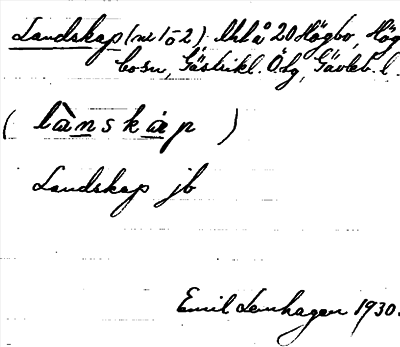 Landskap (nr 1 o 2). Uhlå 20 Högbo, Hög
bosn, Gästrikl. Ölg, Gävleb. l.
( lànskàp )
Landskap jb
Emil Lenhagen 1930.